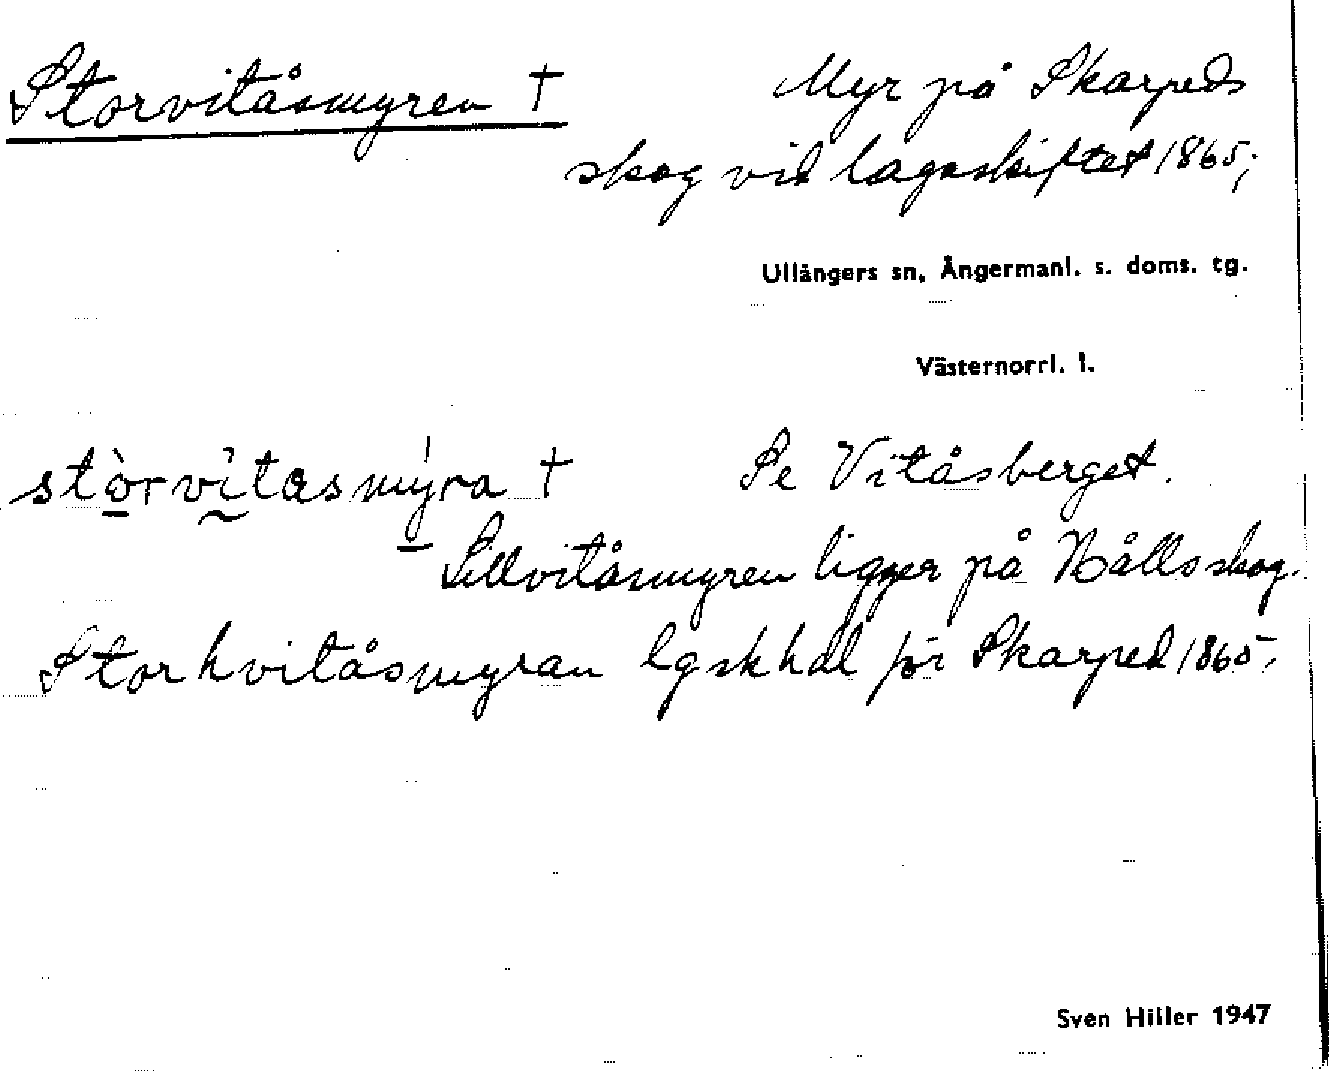 Storvitåsmyren † Myr på Skarpeds
skog vid lagaskiftet 1865;
Ullångers sn, Ångermanl. s. doms. tg.
Västernorrl. l.
stòrvìtasmýra † Se Vitåsberget.
Lillvitåsmyren ligger på Nålls skog.
Storhvitåsmyran lgskhdl för Skarped 1865.
Sven Hiller 1947